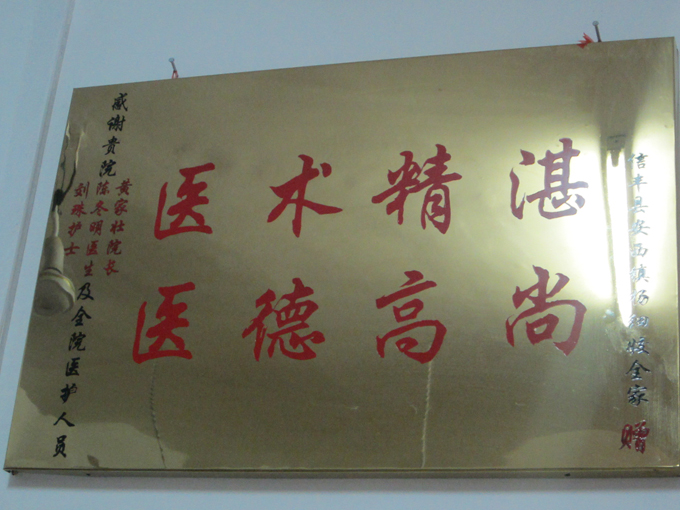 感谢贵院
黄家壮院长
陈冬明医生
刘珠护士
及全院医护人员
医术精湛
医德高尚
信丰县安西镇
全家
赠